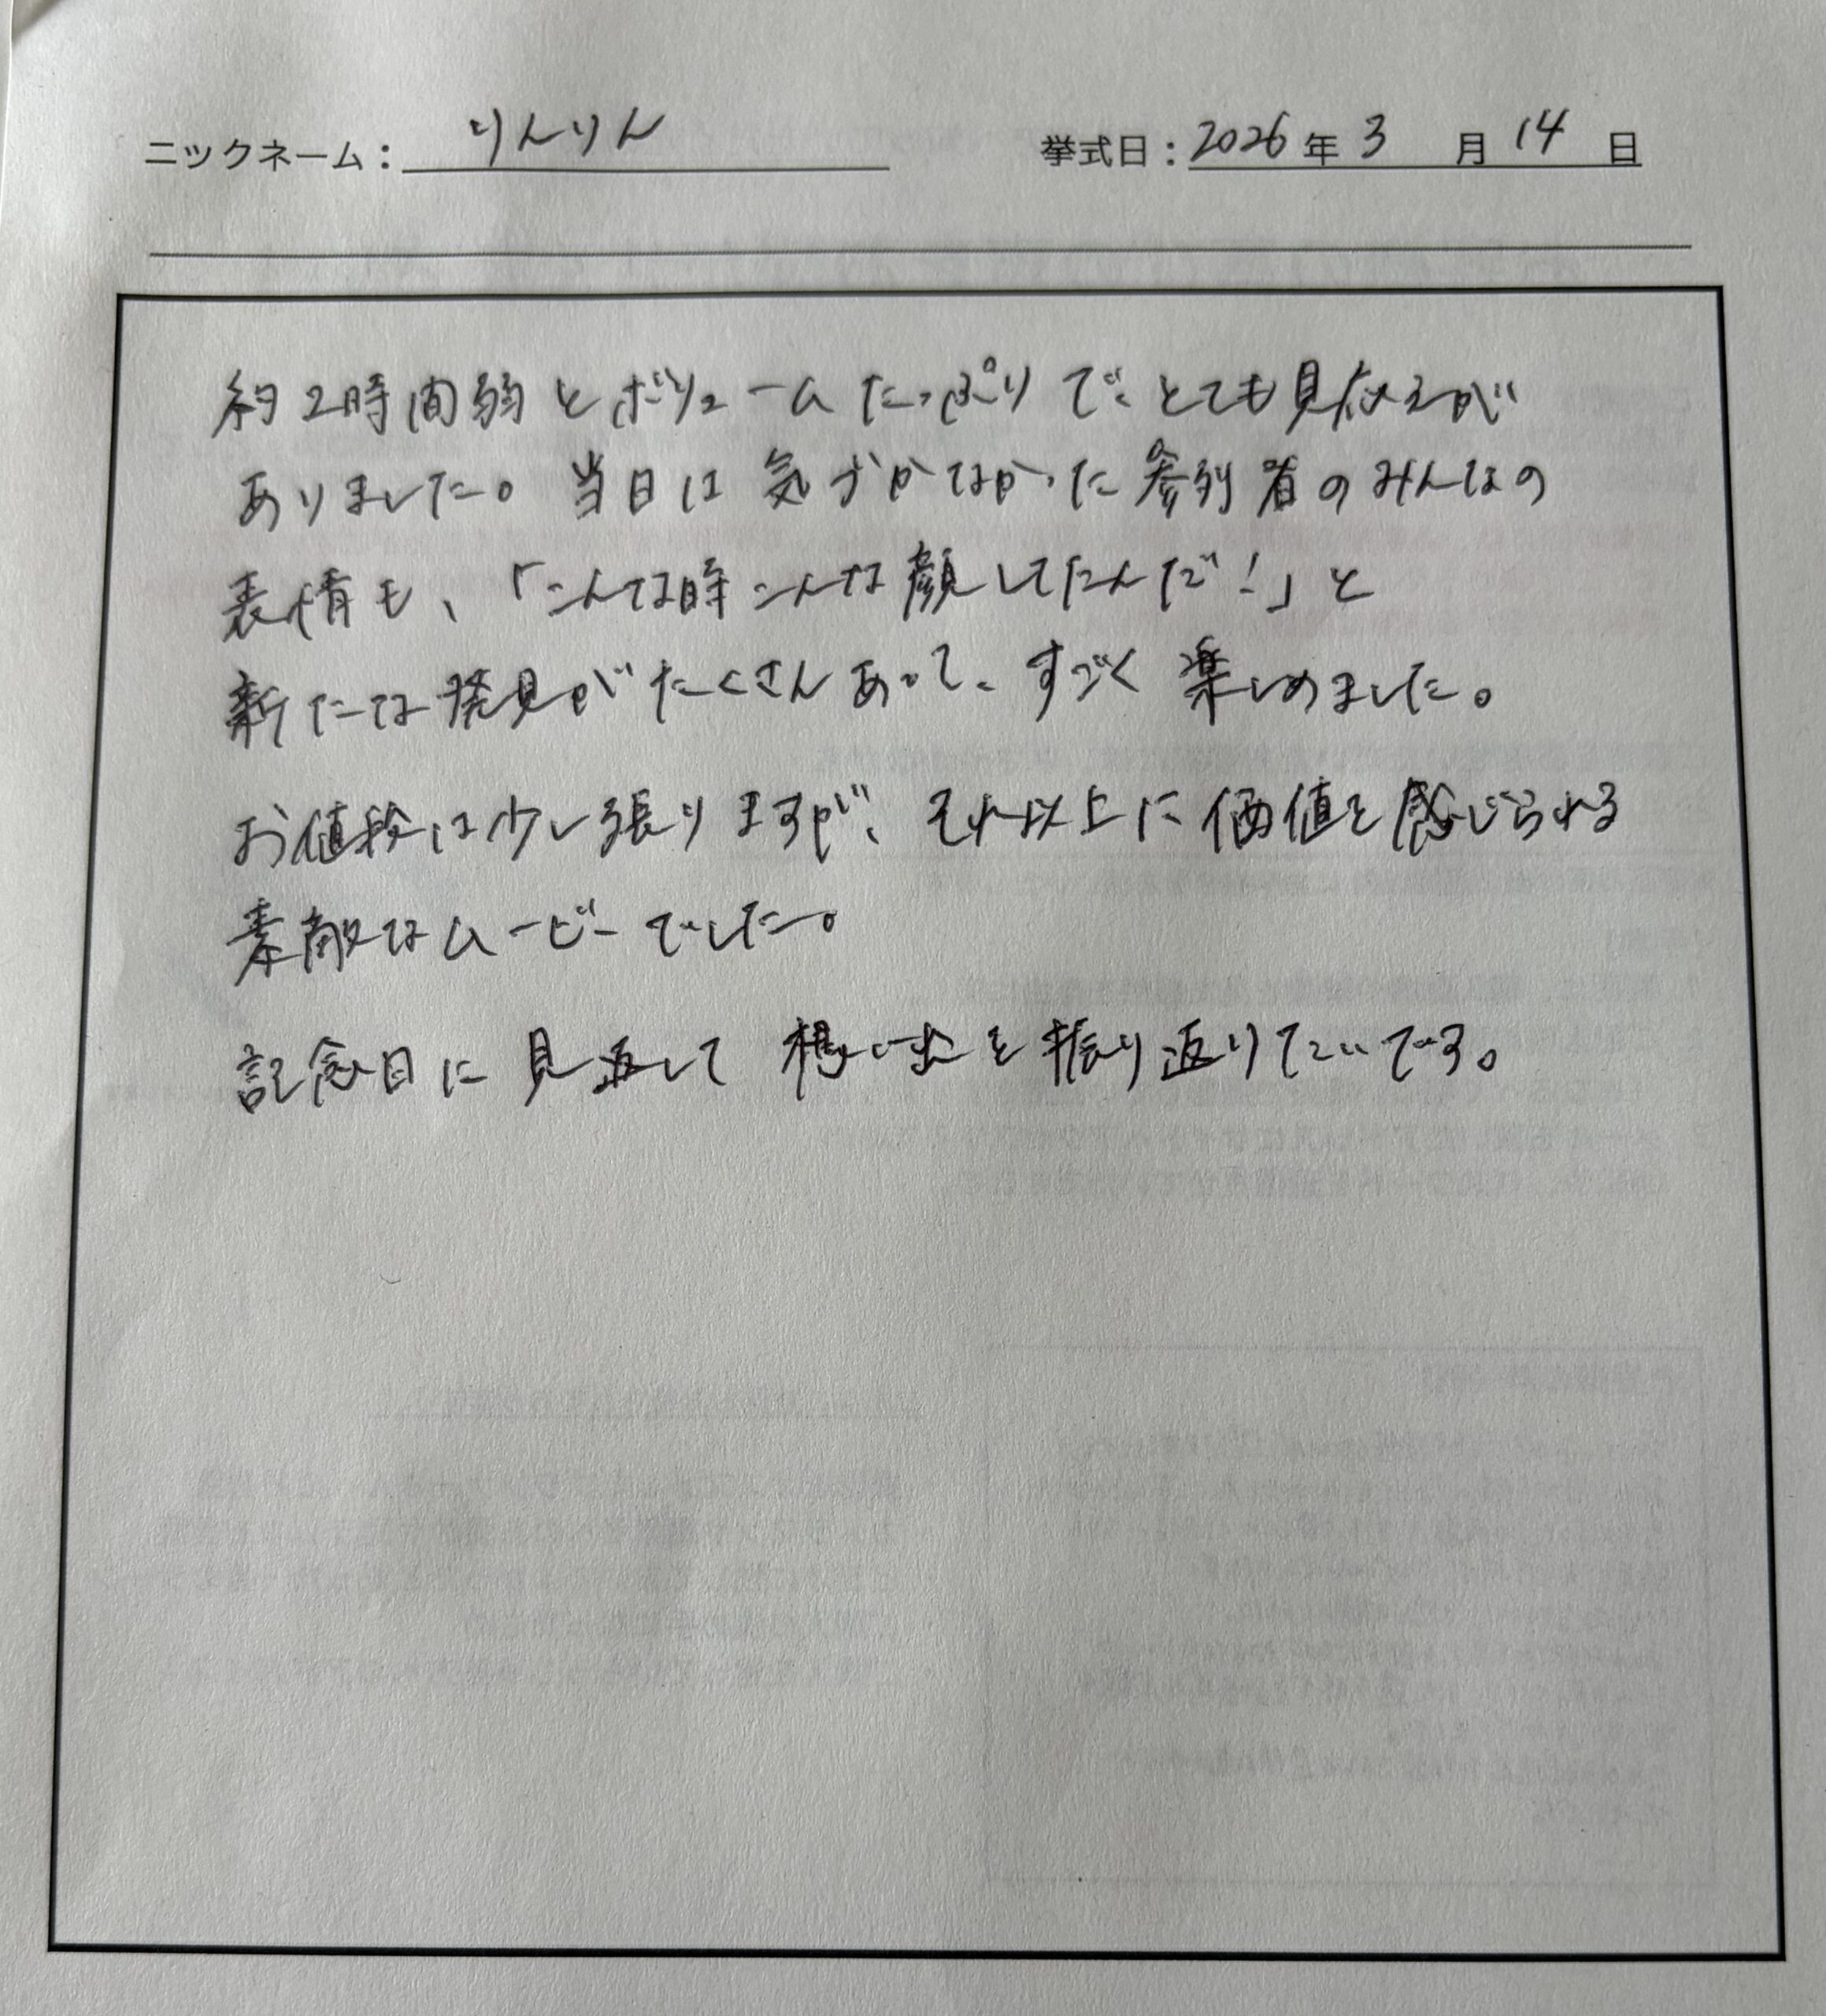 ニックネーム：りんりん 挙式日：2026年3月14日
約2時間弱とボリュームたっぷりで、とても見応えが
ありました。当日は気づかなかった参列者のみんなの
表情も、「こんな時こんな顔してたんだ！」と
新たな発見がたくさんあって、すごく楽しめました。
お値段は少し張りますが、それ以上に価値を感じられる
素敵なムービーでした。
記念日に見返して想い出を振り返りたいです。